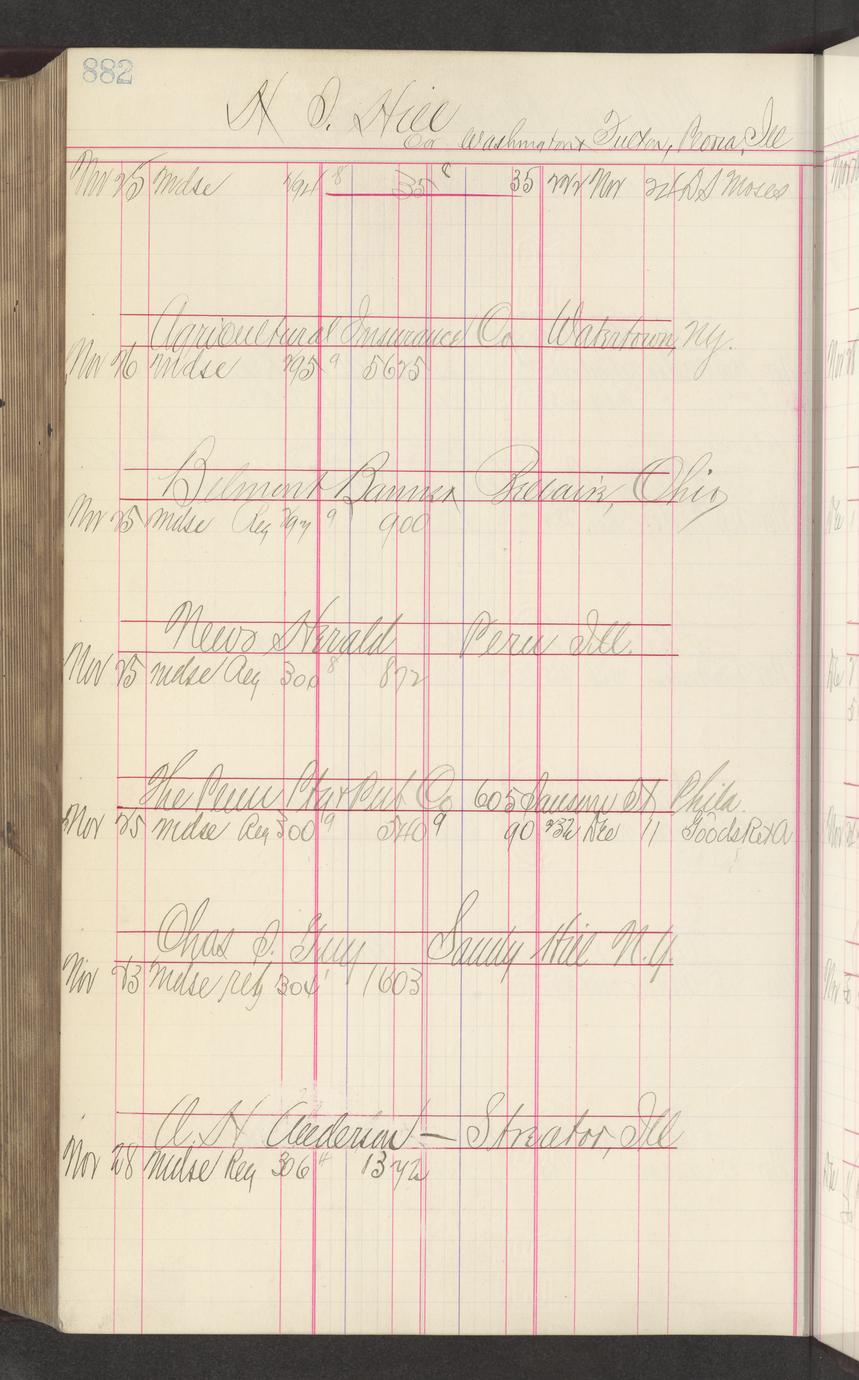 882
H. I. Hill
Cor Washington & Fulton, Peoria, Ill
Nov 25 Mdse 294 8 35 8 35 222 Nov 24 Moses
Agricultural Insurance Co Watertown, N.Y.
Nov 26 Mdse 295 9 5625
Belmont Banner Bellaire, Ohio
Nov 25 Mdse Reg 297 9 900
News Herald Peru Ill.
Nov 25 Mdse Reg 300 8 872
The Penn Star Pub Co 605 Sansom St Phila.
Nov 25 Mdse Reg 300 9 540 9 90 232 Dec 11 Goods Retd
Chas S. Guy Sandy Hill N.Y.
Nov 23 Mdse reg 304 1 1603
A. H. Anderson — Streator, Ill
Nov 28 Mdse Reg 306 4 1372